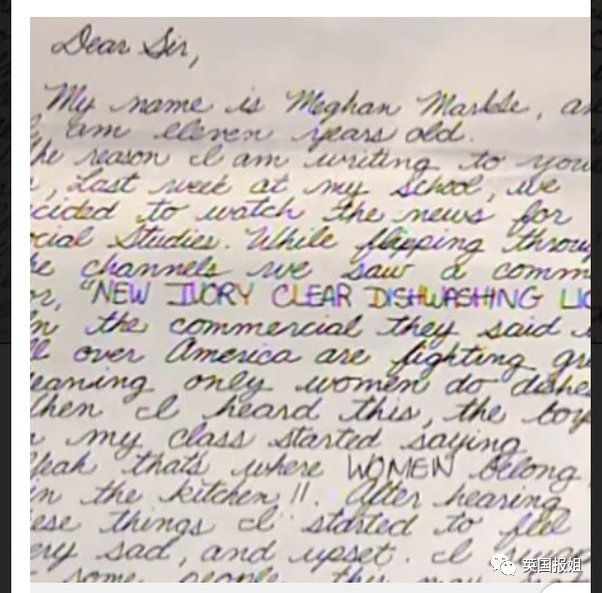 Dear Sir,
My name is Meghan Markle, an
I am eleven years old.
he reason I am writing to you
, Last week at my school, we
cided to watch the news for
ocial Studies. While flipping throug
he channels we saw a comm
or, "NEW IVORY CLEAR DISHWASHING LIQ
In the commercial they said
ll over America are fighting gr
eaning only women do dishe
hen I heard this, the boy
n my class started saying
Yeah that's where WOMEN belong
in the kitchen!!. After hearing
ese things I started to feel
ery sad, and upset. I
some people
英国报姐